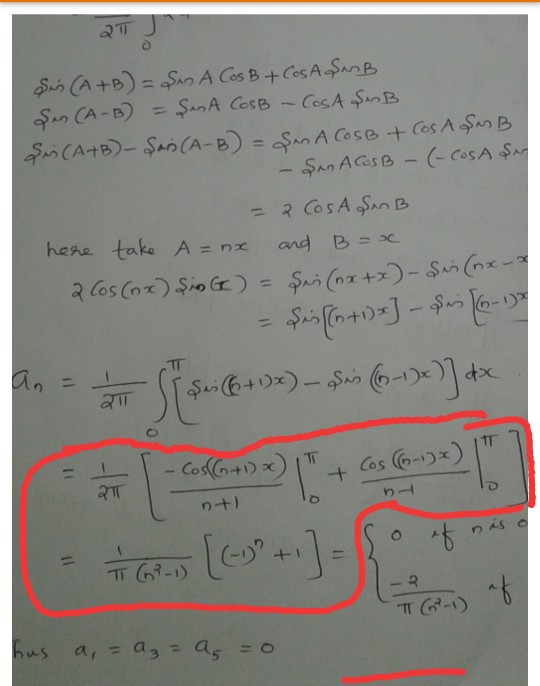 2π ∫ 0
Sin(A+B) = Sin A CosB + CosA SinB
Sin(A-B) = SinA CosB - CosA SinB
Sin(A+B) - Sin(A-B) = SinA CosB + CosA SinB
- SinA CosB - (-CosA Sin
= 2 CosA SinB
here take A = nx and B = x
2 Cos(nx) Sin(x) = Sin(nx+x) - Sin(nx-x
= Sin[(n+1)x] - Sin[(n-1)x
an = 1/2π ∫₀^π [Sin((n+1)x) - Sin((n-1)x)] dx.
= 1/2π [ -Cos((n+1)x)/n+1 |₀^π + Cos((n-1)x)/n-1 |₀^π ]
= 1/π(n²-1) [(-1)ⁿ + 1] = { 0 if n is o
-2/π(n²-1) if
Thus a₁ = a₃ = a₅ = 0